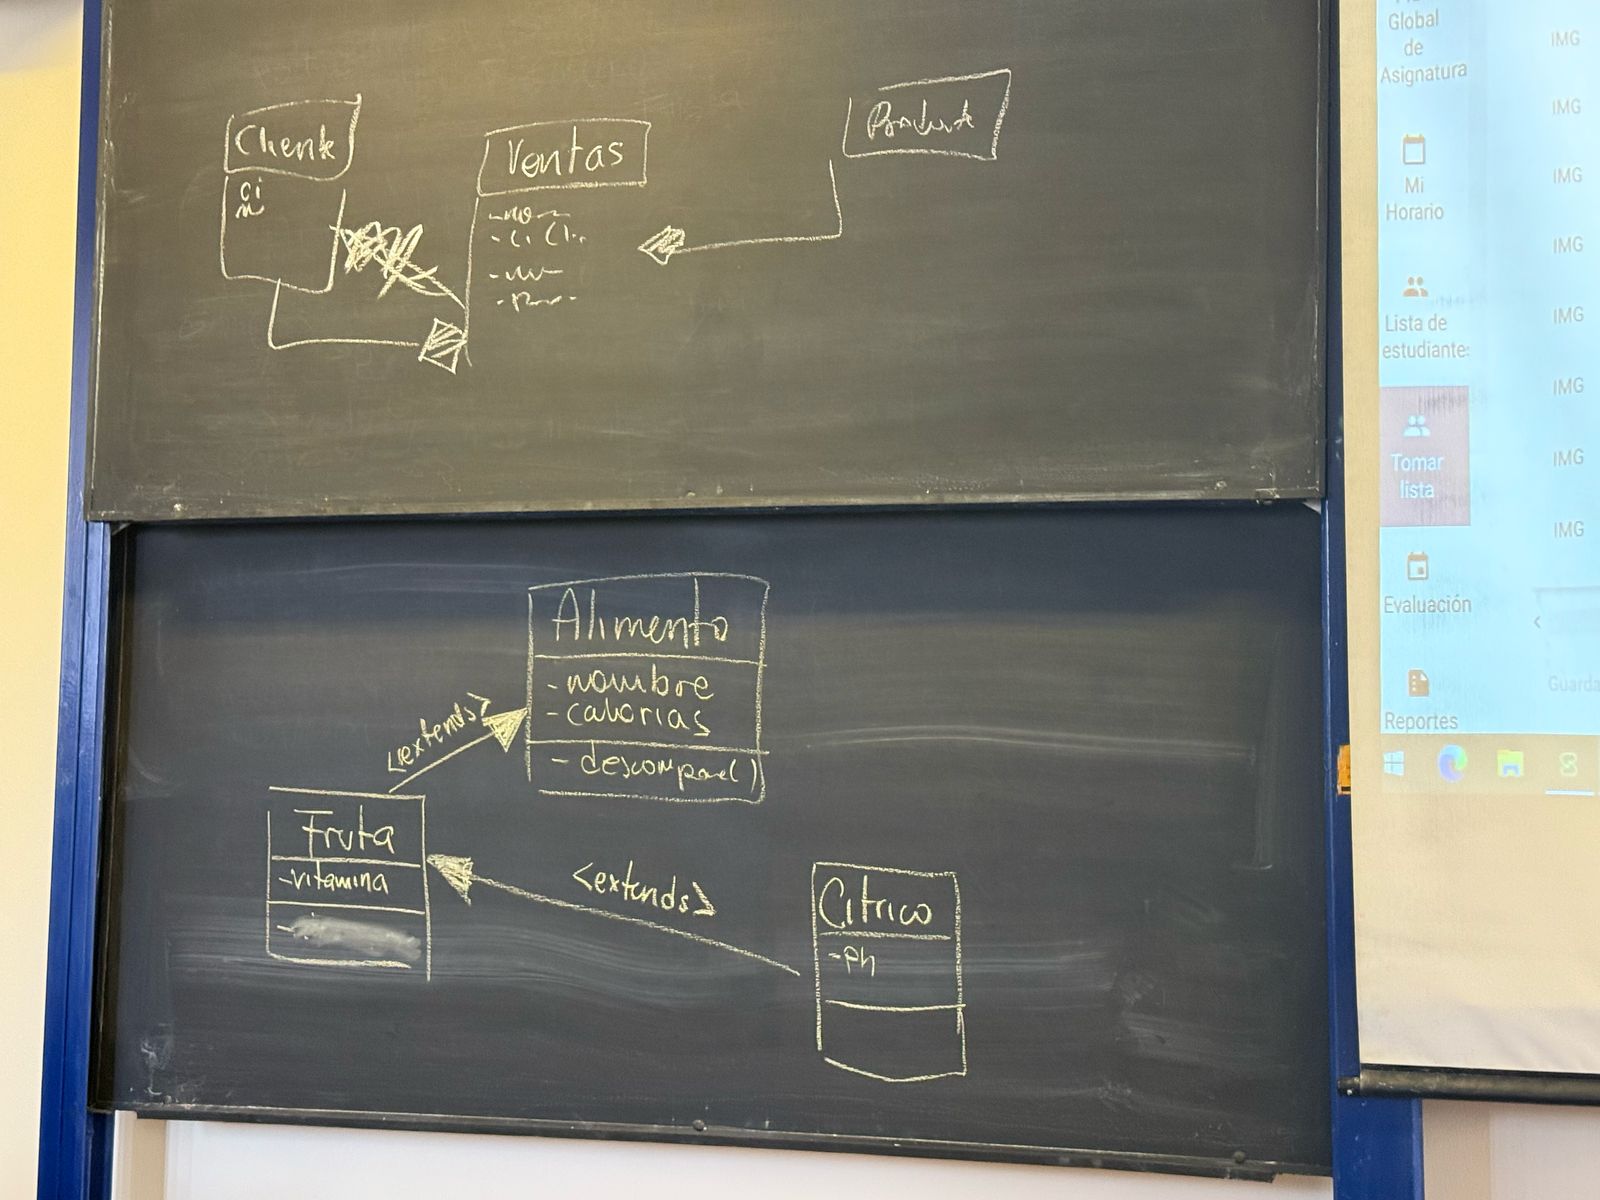 Cliente
ci
Ventas
- ci Cli.
Producto
Alimento
- nombre
- calorias
- descomponer()
<extends>
Fruta
- vitamina
<extends>
Citrico
- Ph
Global
de
Asignatura
Mi
Horario
Lista de
estudiantes
Tomar
lista
Evaluación
Reportes
IMG
IMG
IMG
IMG
IMG
IMG
IMG
IMG
<
Guarda